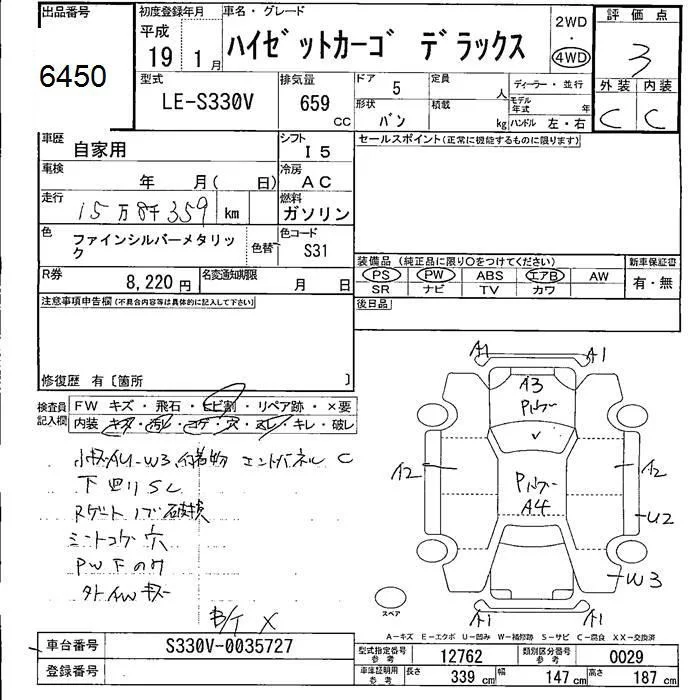 出品番号
6450
初度登録年月
平成
19 年 1 月
車名・グレード
ハイゼットカーゴ デラックス
2WD
・
4WD
評価点
3
外装 内装
C C
型式
LE-S330V
排気量
659 CC
ドア 5
定員 人
ディーラー・並行
形状 バン
積載 kg
モデル年式 年
ハンドル 左・右
車歴
自家用
シフト
I5
セールスポイント(正常に機能するものに限ります)
車検
年 月( 日)
冷房
AC
走行
15万8千359 km
燃料
ガソリン
色
ファインシルバーメタリック
色替
色コード
S31
R券
8,220円
名変通知期限
月 日
装備品(純正品に限り○をつけてください)
PS PW ABS エアB AW
SR ナビ TV カワ
新車保証書
有・無
後日品
注意事項申告欄(不具合内容等は具体的に記入して下さい)
修復歴 有〔箇所 〕
検査員記入欄
FW キズ・飛石・ヒビ割・リペア跡・×要
内装 キズ・汚れ・コゲ・穴・スレ・キレ・破レ
W3
エンドパネル C
下回りSC
Rゲート
破損
シートコゲ 穴
PW下のみ
B/T X
A1 A1
A3
A2
A4
A2
U2
W3
A1 A1
スペア
A-キズ E-エクボ U-凹み W-補修跡 S-サビ C-腐食 XX-交換済
車台番号
S330V-0035727
登録番号
型式指定番号 参考 12762
類別区分番号 参考 0029
車庫証明用 参考
長さ 339 cm 幅 147 cm 高さ 187 cm